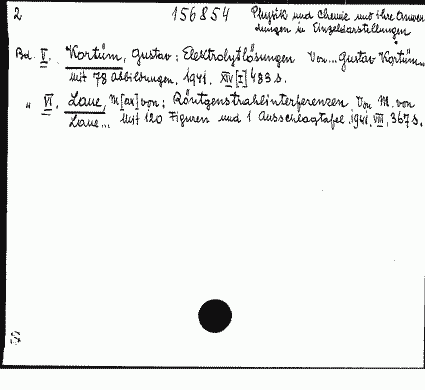 2 156854 Physik und Chemie und ihre Anwen-
dungen in Einzeldarstellungen
Bd. V. Kortüm, Gustav: Elektrolytlösungen Von... Gustav Kortüm...
mit 78 Abbildungen, 1941. XIV [I] 483 s.
" VI. Laue, M[ax] von; Röntgenstrahlinterferenzen Von M. von
Laue... Mit 120 Figuren und 1 Ausschlagtafel, 1941, VIII, 367 s.